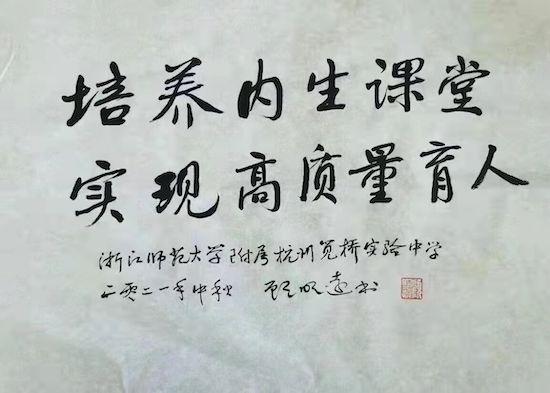 培养内生课堂
实现高质量育人
浙江师范大学附属杭州笕桥实验中学
二零二一年中秋 顾明远书